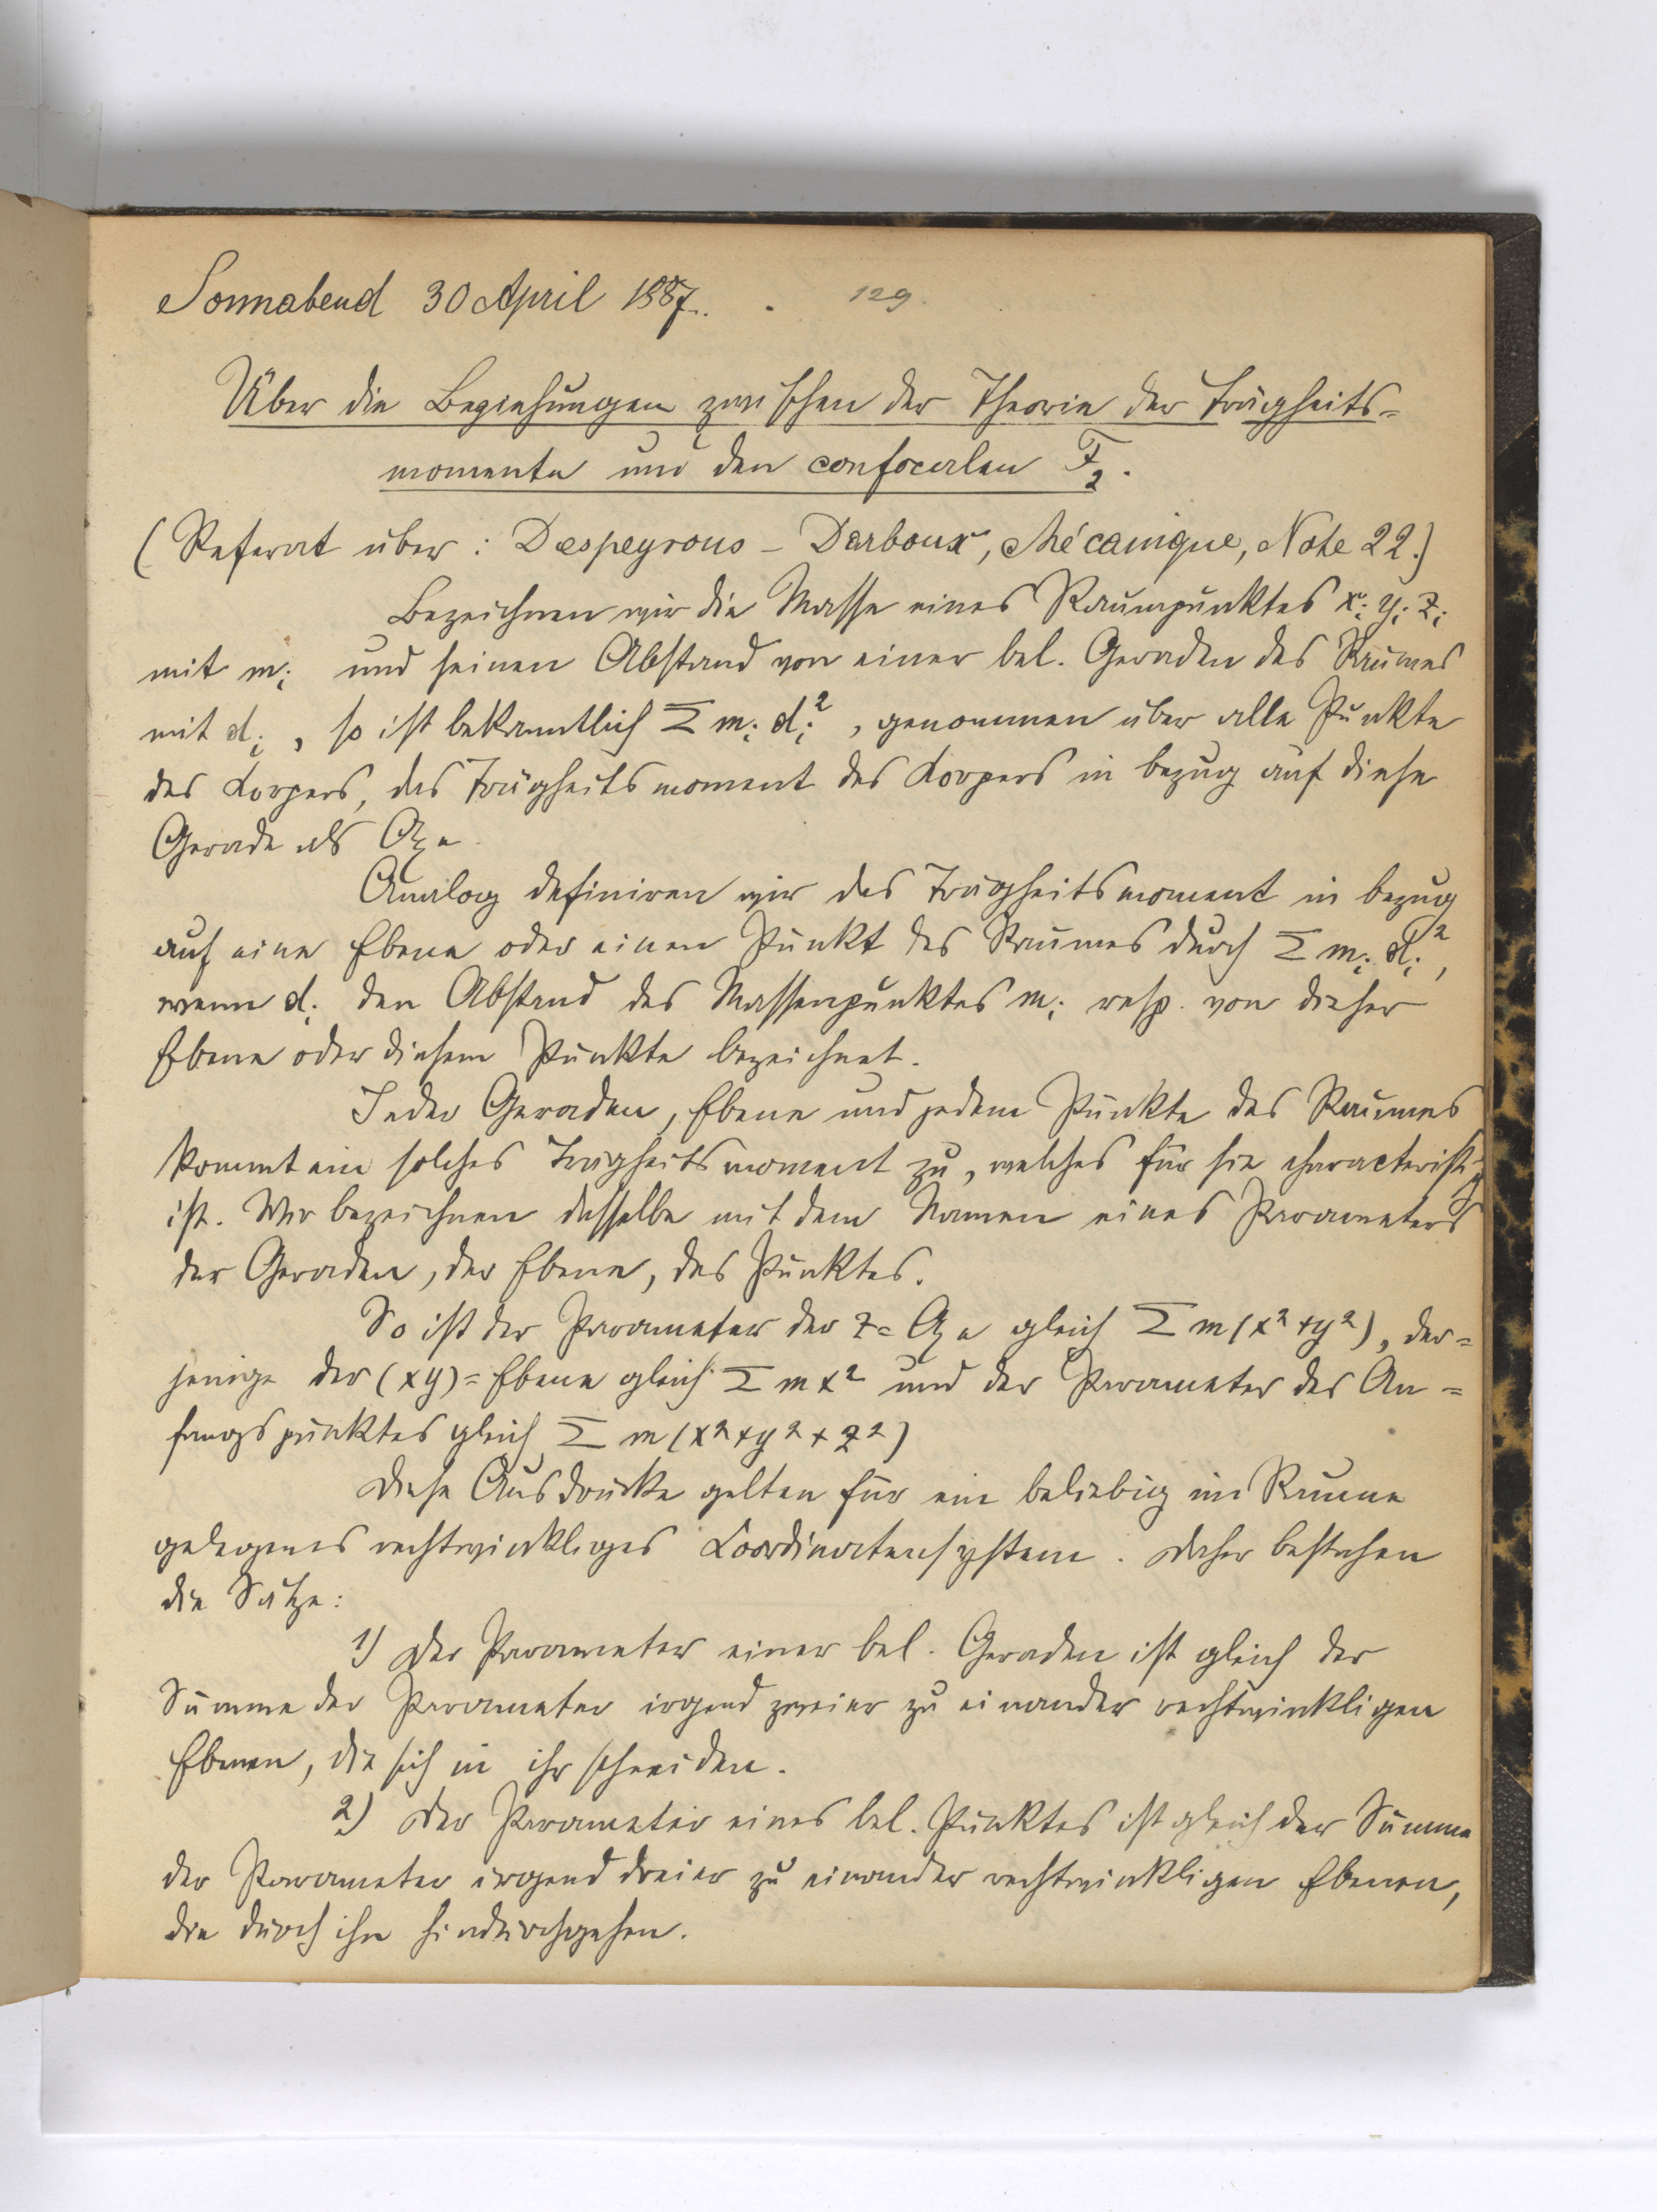 Sonnabend 30 April 1887. 129.
Über die Beziehungen zwischen der Theorie der Trägheits-
momente und den confocalen F₂.
(Referat über: Despeyrous - Darboux, Mécanique, Note 22.)
Bezeichnen wir die Masse eines Raumpunktes xᵢ yᵢ zᵢ
mit mᵢ und seinen Abstand von einer bel. Geraden des Raumes
mit dᵢ, so ist bekanntlich Σ mᵢ dᵢ², genommen über alle Punkte
des Körpers, das Trägheitsmoment des Körpers in bezug auf diese
Gerade als Axe.
Analog definiren wir das Trägheitsmoment in bezug
auf eine Ebene oder einen Punkt des Raumes durch Σ mᵢ dᵢ²,
wenn dᵢ den Abstand des Massenpunktes mᵢ resp. von dieser
Ebene oder diesem Punkte bezeichnet.
Jeder Geraden, Ebene und jedem Punkte des Raumes
kommt ein solches Trägheitsmoment zu, welches für sie characteristisch
ist. Wir bezeichnen dasselbe mit dem Namen eines Parameters
der Geraden, der Ebene, des Punktes.
So ist der Parameter der z = Axe gleich Σ m (x² + y²), der=
jenige der (xy) = Ebene gleich Σ m x² und der Parameter des An=
fangspunktes gleich Σ m (x² + y² + z²)
Diese Ausdrücke gelten für ein beliebig im Raume
gelegenes rechtwinkliges Coordinatensystem. Daher bestehen
die Sätze:
1) Der Parameter einer bel. Geraden ist gleich der
Summe der Parameter irgend zweier zu einander rechtwinkligen
Ebenen, die sich in ihr schneiden.
2) Der Parameter eines bel. Punktes ist gleich der Summe
der Parameter irgend dreier zu einander rechtwinkligen Ebenen,
die durch ihn hindurchgehen.